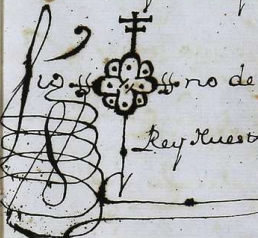 Sig no de
Rey Nuest